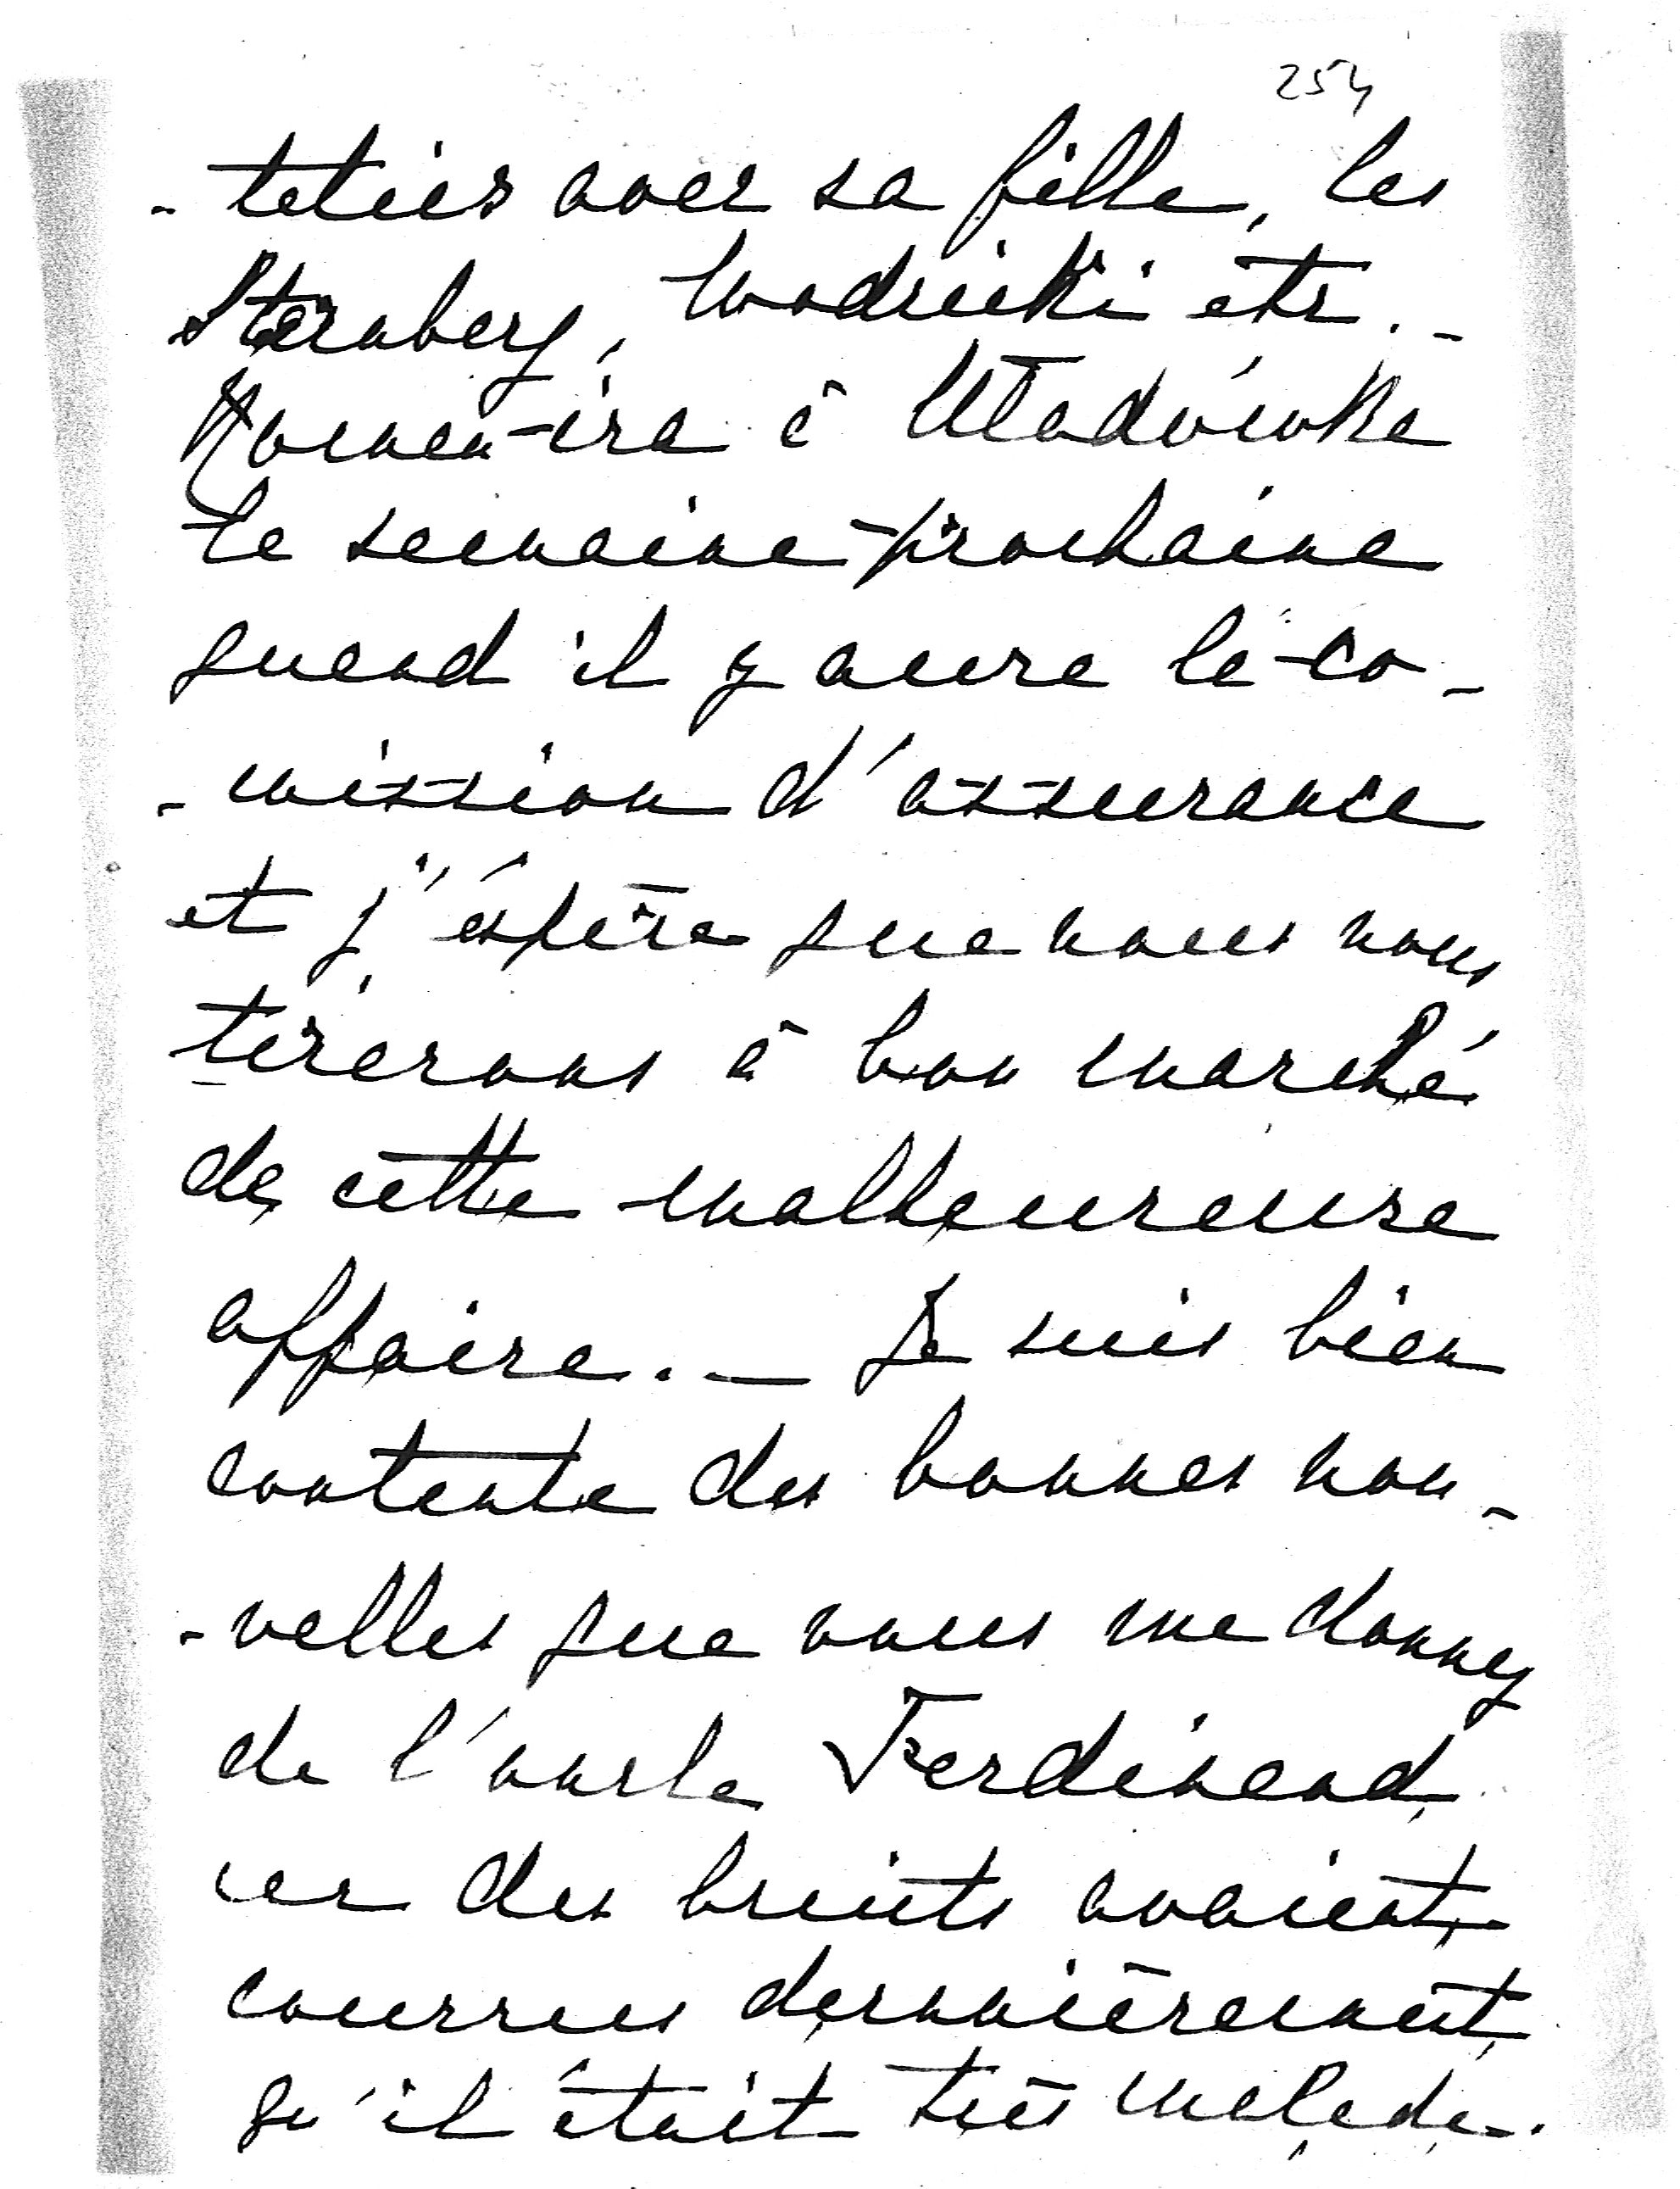 254
-teties avec sa fille, les
Sternberg, Wodzicki etc. -
Maman ira à Uładówka
la semaine prochaine
quand il y aura la co-
-mission d'assurance
et j'éspère que nous nous
tirerons à bon marché
de cette malheureuse
affaire. — Je suis bien
contente des bonnes nou-
-velles que vous me donnez
de l'oncle Ferdinand
car des bruits avaient
courrus dernnièrement
qu'il était très malade.